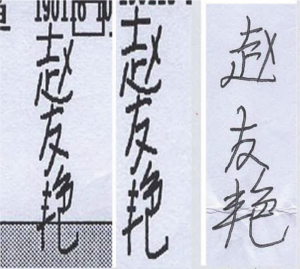 190116
赵友艳
赵友艳
赵友艳